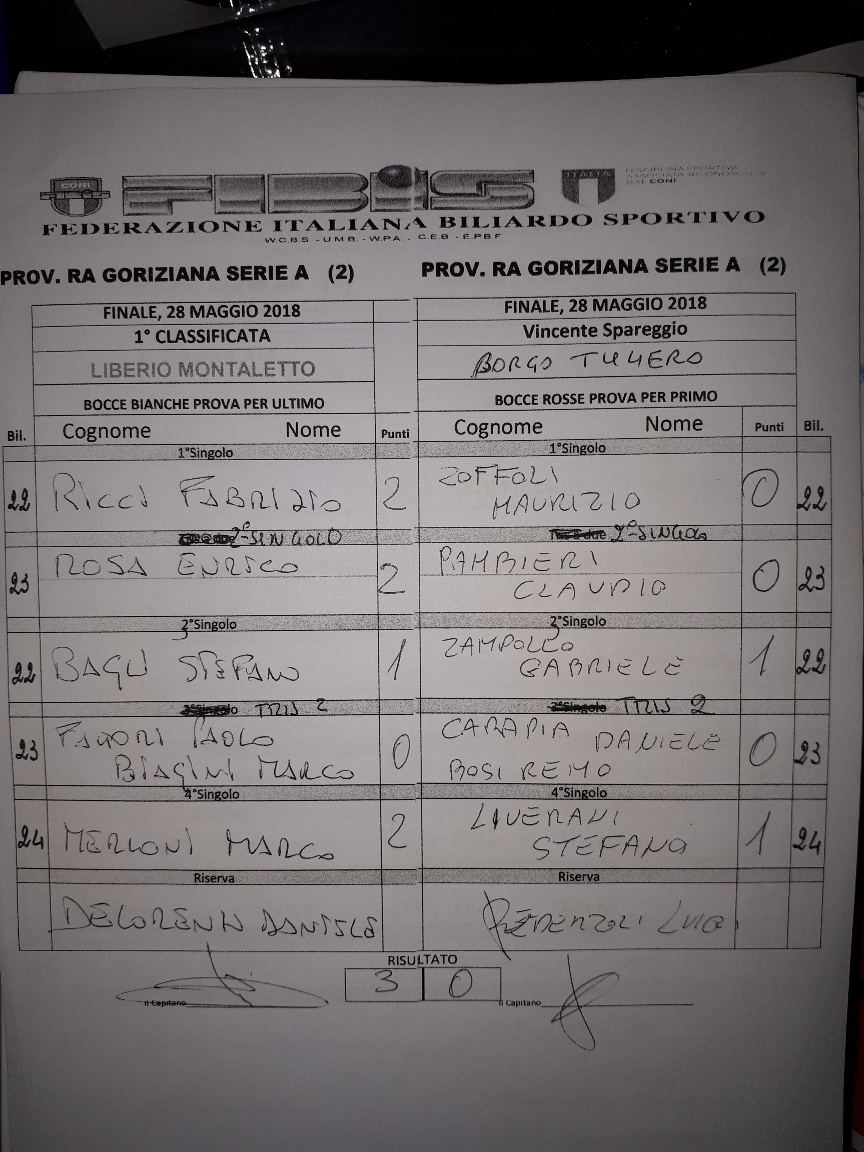 CONI FIBIS ITALIA DISCIPLINA SPORTIVA
ASSOCIATA RICONOSCIUTA
DAL CONI
FEDERAZIONE ITALIANA BILIARDO SPORTIVO
W.C.B.S - U.M.B - W.P.A. - C.E.B - E.P.B.F
PROV. RA GORIZIANA SERIE A (2) PROV. RA GORIZIANA SERIE A (2)
FINALE, 28 MAGGIO 2018 FINALE, 28 MAGGIO 2018
1° CLASSIFICATA Vincente Spareggio
LIBERIO MONTALETTO BORGO TULIERO
BOCCE BIANCHE PROVA PER ULTIMO BOCCE ROSSE PROVA PER PRIMO
Bil. Cognome Nome Punti Cognome Nome Punti Bil.
1°Singolo 1°Singolo
22 RICCI FABRIZIO 2 ZOFFOLI 0 22
MAURIZIO
2° SINGOLO 2° SINGOLO
23 ROSA ENRICO 2 PAMBIERI 0 23
CLAUDIO
3°Singolo 3°Singolo
22 BAGLI STEFANO 1 ZAMPOLLO 1 22
GABRIELE
TRIS 2 TRIS 2
23 PAOLO 0 CARAPIA DANIELE 0 23
BIAGINI MARCO BOSI REMO
4°Singolo 4°Singolo
24 MERLONI MARCO 2 LIVERANI 1 24
STEFANO
Riserva Riserva
DELORENZI DANIELE LUIGI
RISULTATO
3 0
Il Capitano Il Capitano